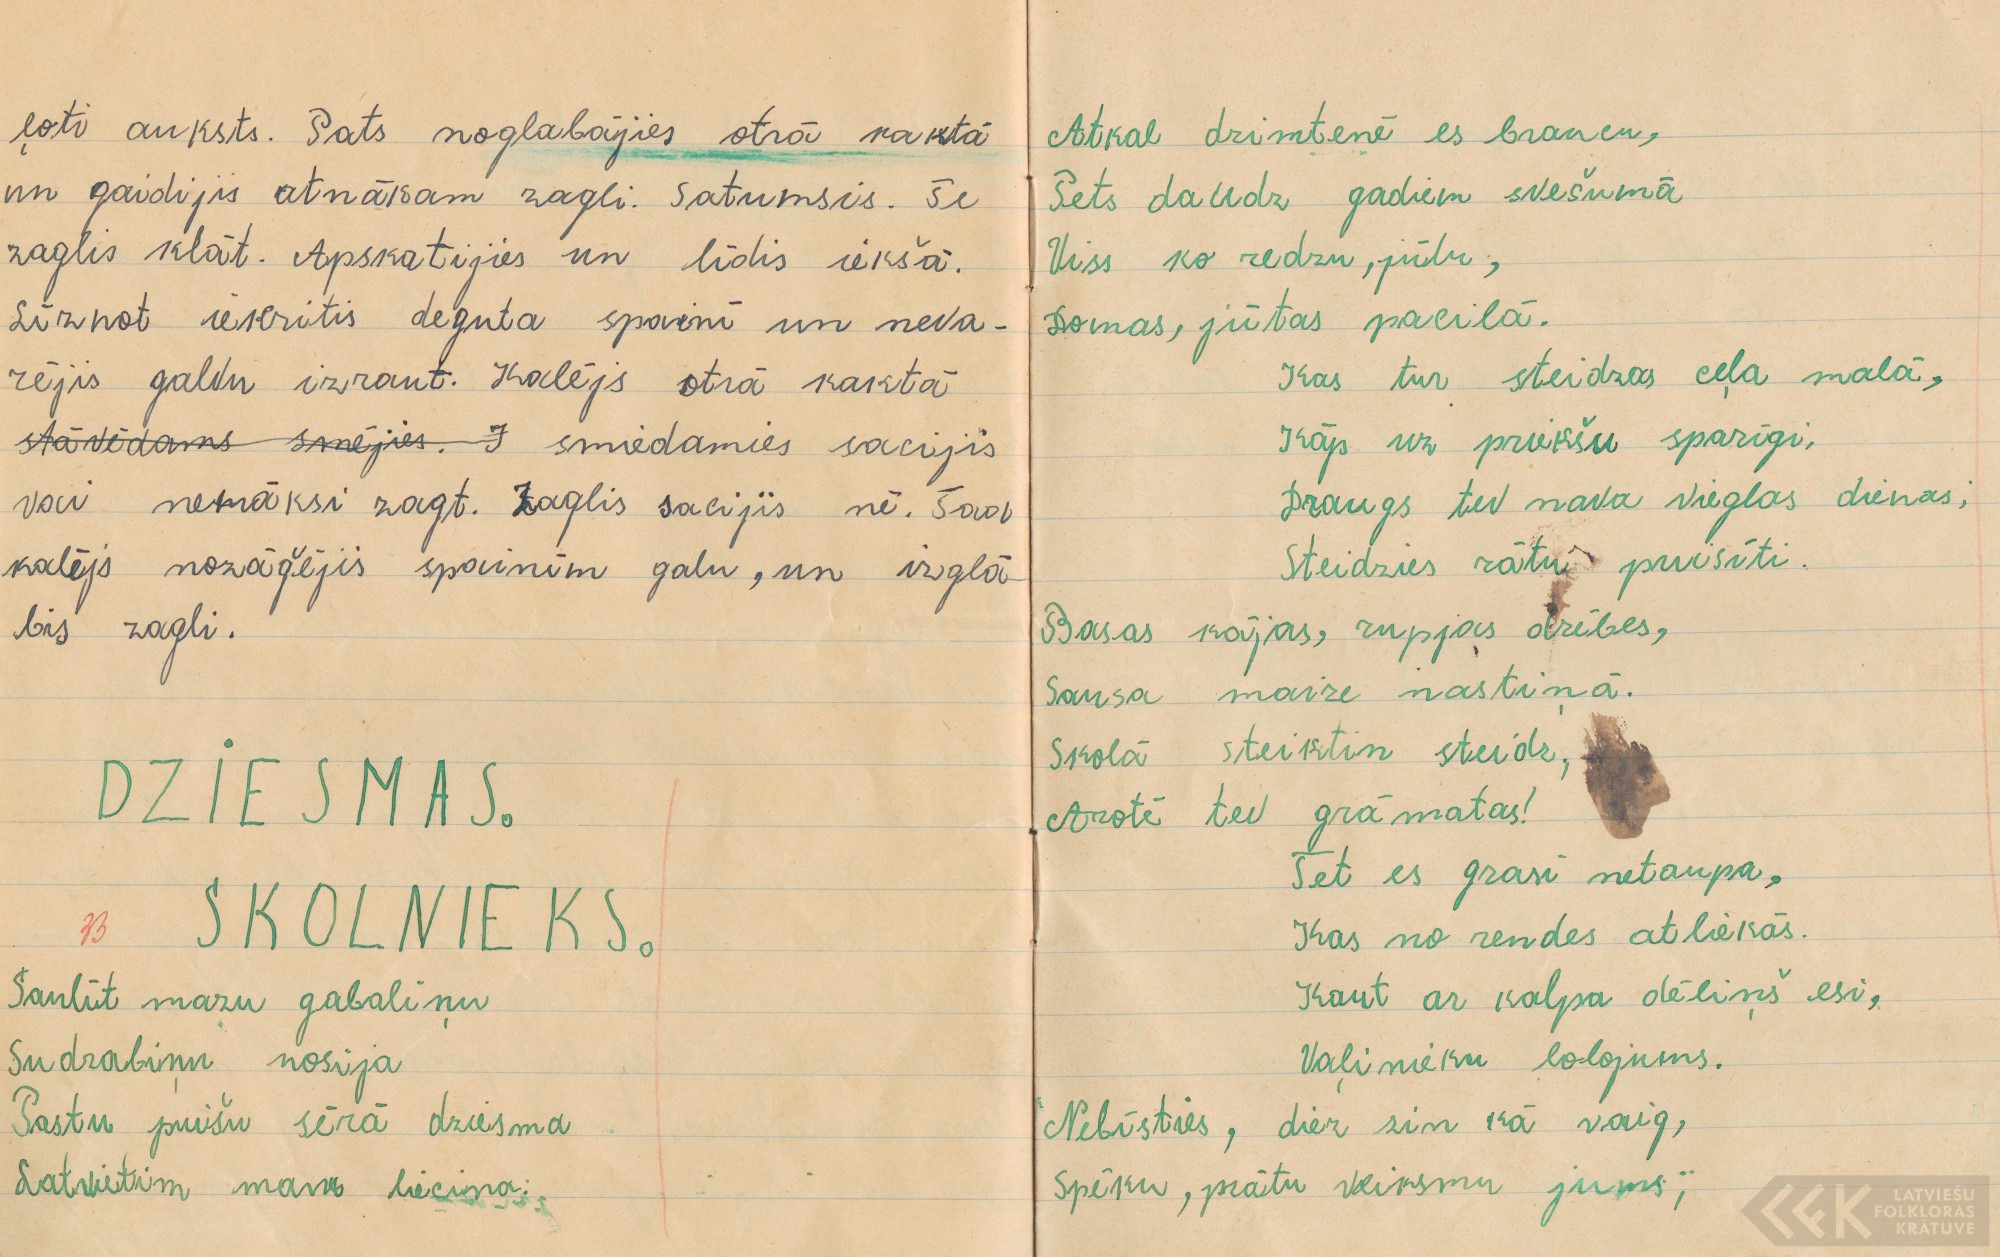 ļoti auksts. Pats noglabājies otrā kaktā
un gaidijis atnākam zagli. Satumsis. Te
zaglis klāt. Apskatijies un līdis iekšā.
Līznot iekritis deguta spainī un neva-
rējis galvu izraut. Kalējs otrā kaktā
stāvēdams smējies. I smiedamies sacijis
vai nenāksi zagt. Zaglis sacijis nē. Tad
kalējs nozāģējis spainim galu, un izglā-
bis zagli.
DZIESMAS.
B SKOLNIEKS.
Saulīt mazu gabaliņu
Sudrabiņu nosīja
Pastu puišu sērā dziesma
Latvietim man liecina:
Atkal dzimtenē es braucu,
Pēts daudz gadiem svešumā
Viss ko redzu, jūtu,
Domas, jūtas pacilā.
Kas tur steidzas ceļa malā,
Kāp uz priekšu sparīgi,
Draugs tev nava vieglas dienas;
Steidzies rātu puisīti.
Basas kājas, rupjas drēbes,
Sausa maize nastiņā.
Skolā steiktin steidz,
Arotē tev grāmatas!
Tet es grasi netaupa,
Kas no rendes atliekās.
Kaut ar kalpa dēliņš esi,
Vaļinieku lolojums.
Nebīsties, diez zin kā vaig,
Spēku, prātu veiksmu jums;
LATVIEŠU
FOLKLORAS
KRĀTUVE